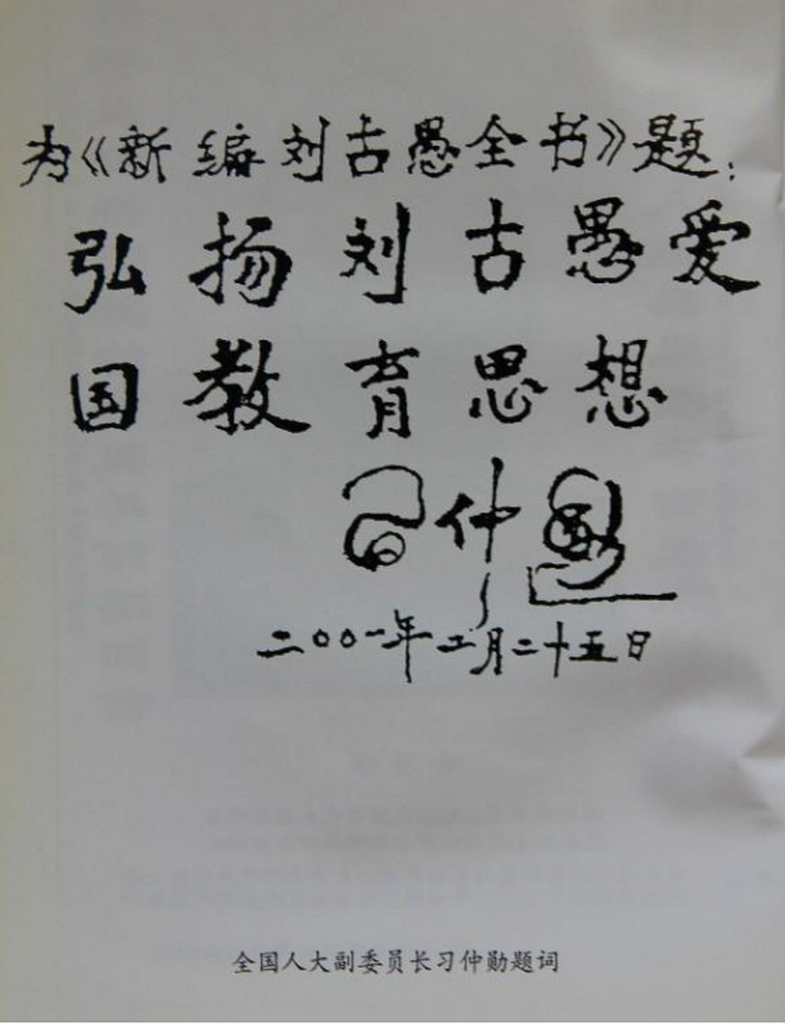 为《新编刘古愚全书》题：
弘扬刘古愚爱
国教育思想
习仲勋
二〇〇一年二月二十五日
全国人大副委员长习仲勋题词